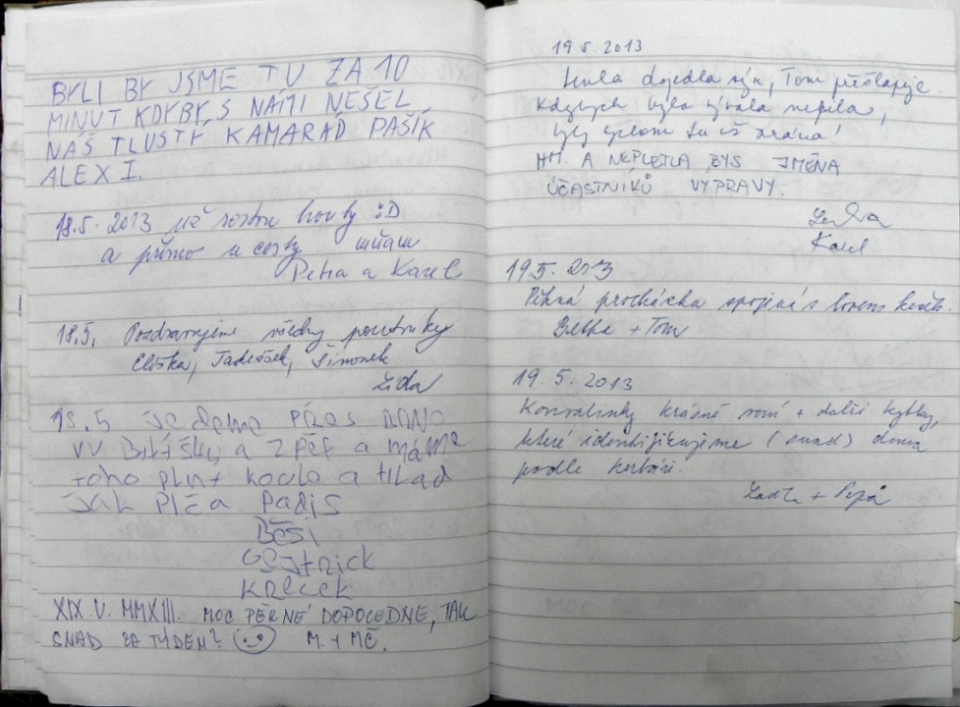 BYLI BY JSME TU ZA 10
MINUT KDYBY S NÁMI NEŠEL
NÁŠ TLUSTÝ KAMARÁD PAŠÍK
ALEX I.
18.5. 2013 už rostou houby :D
a přímo u cesty mňam
Petra a Karel
18.5. Pozdravujeme všechny poutníky
Eliška, Tadeášek, Šimonek
Lída
18.5 Jedeme přes BRNO
VV Bitíšku a zpět a máme
toho plný koule a hlad
jak
Padis
Běsi
Krecek
XIX. V. MMXIII. MOC PĚKNÉ DOPOLEDNE, TAK
SNAD ZA TÝDEN? M. + MČ.
19 5. 2013
Lenka dojedla sýr, Tom přešlapuje.
Kdybych byla bývala nepila,
byla!
HM. A NEPLETLA BYS JMÉNA
ÚČASTNÍKŮ VÝPRAVY.
Lenka
Karel
19.5. 2013
Pěkná procházka spojená s lovem
Betka + Tom
19. 5. 2013
Konvalinky krásně voní + další kytky,
které identifikujeme (snad) doma
podle herbáře.
+ Pepa